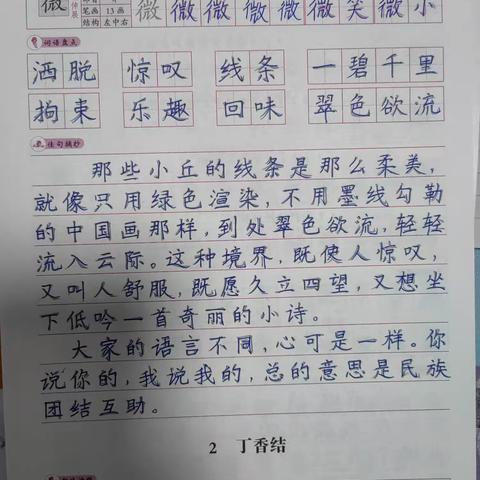 微 笔画 13画 微 微 微 微 微 微 笑 微 小
结构 左中右
词语盘点
洒脱 惊叹 线条 一碧千里
拘束 乐趣 回味 翠色欲流
佳句摘抄
那些小丘的线条是那么柔美,
就像只用绿色渲染,不用墨线勾勒
的中国画那样,到处翠色欲流,轻轻
流入云际。这种境界,既使人惊叹,
又叫人舒服,既愿久立四望,又想坐
下低吟一首奇丽的小诗。
大家的语言不同,心可是一样。你
说你的,我说我的,总的意思是民族
团结互助。
2 丁香结